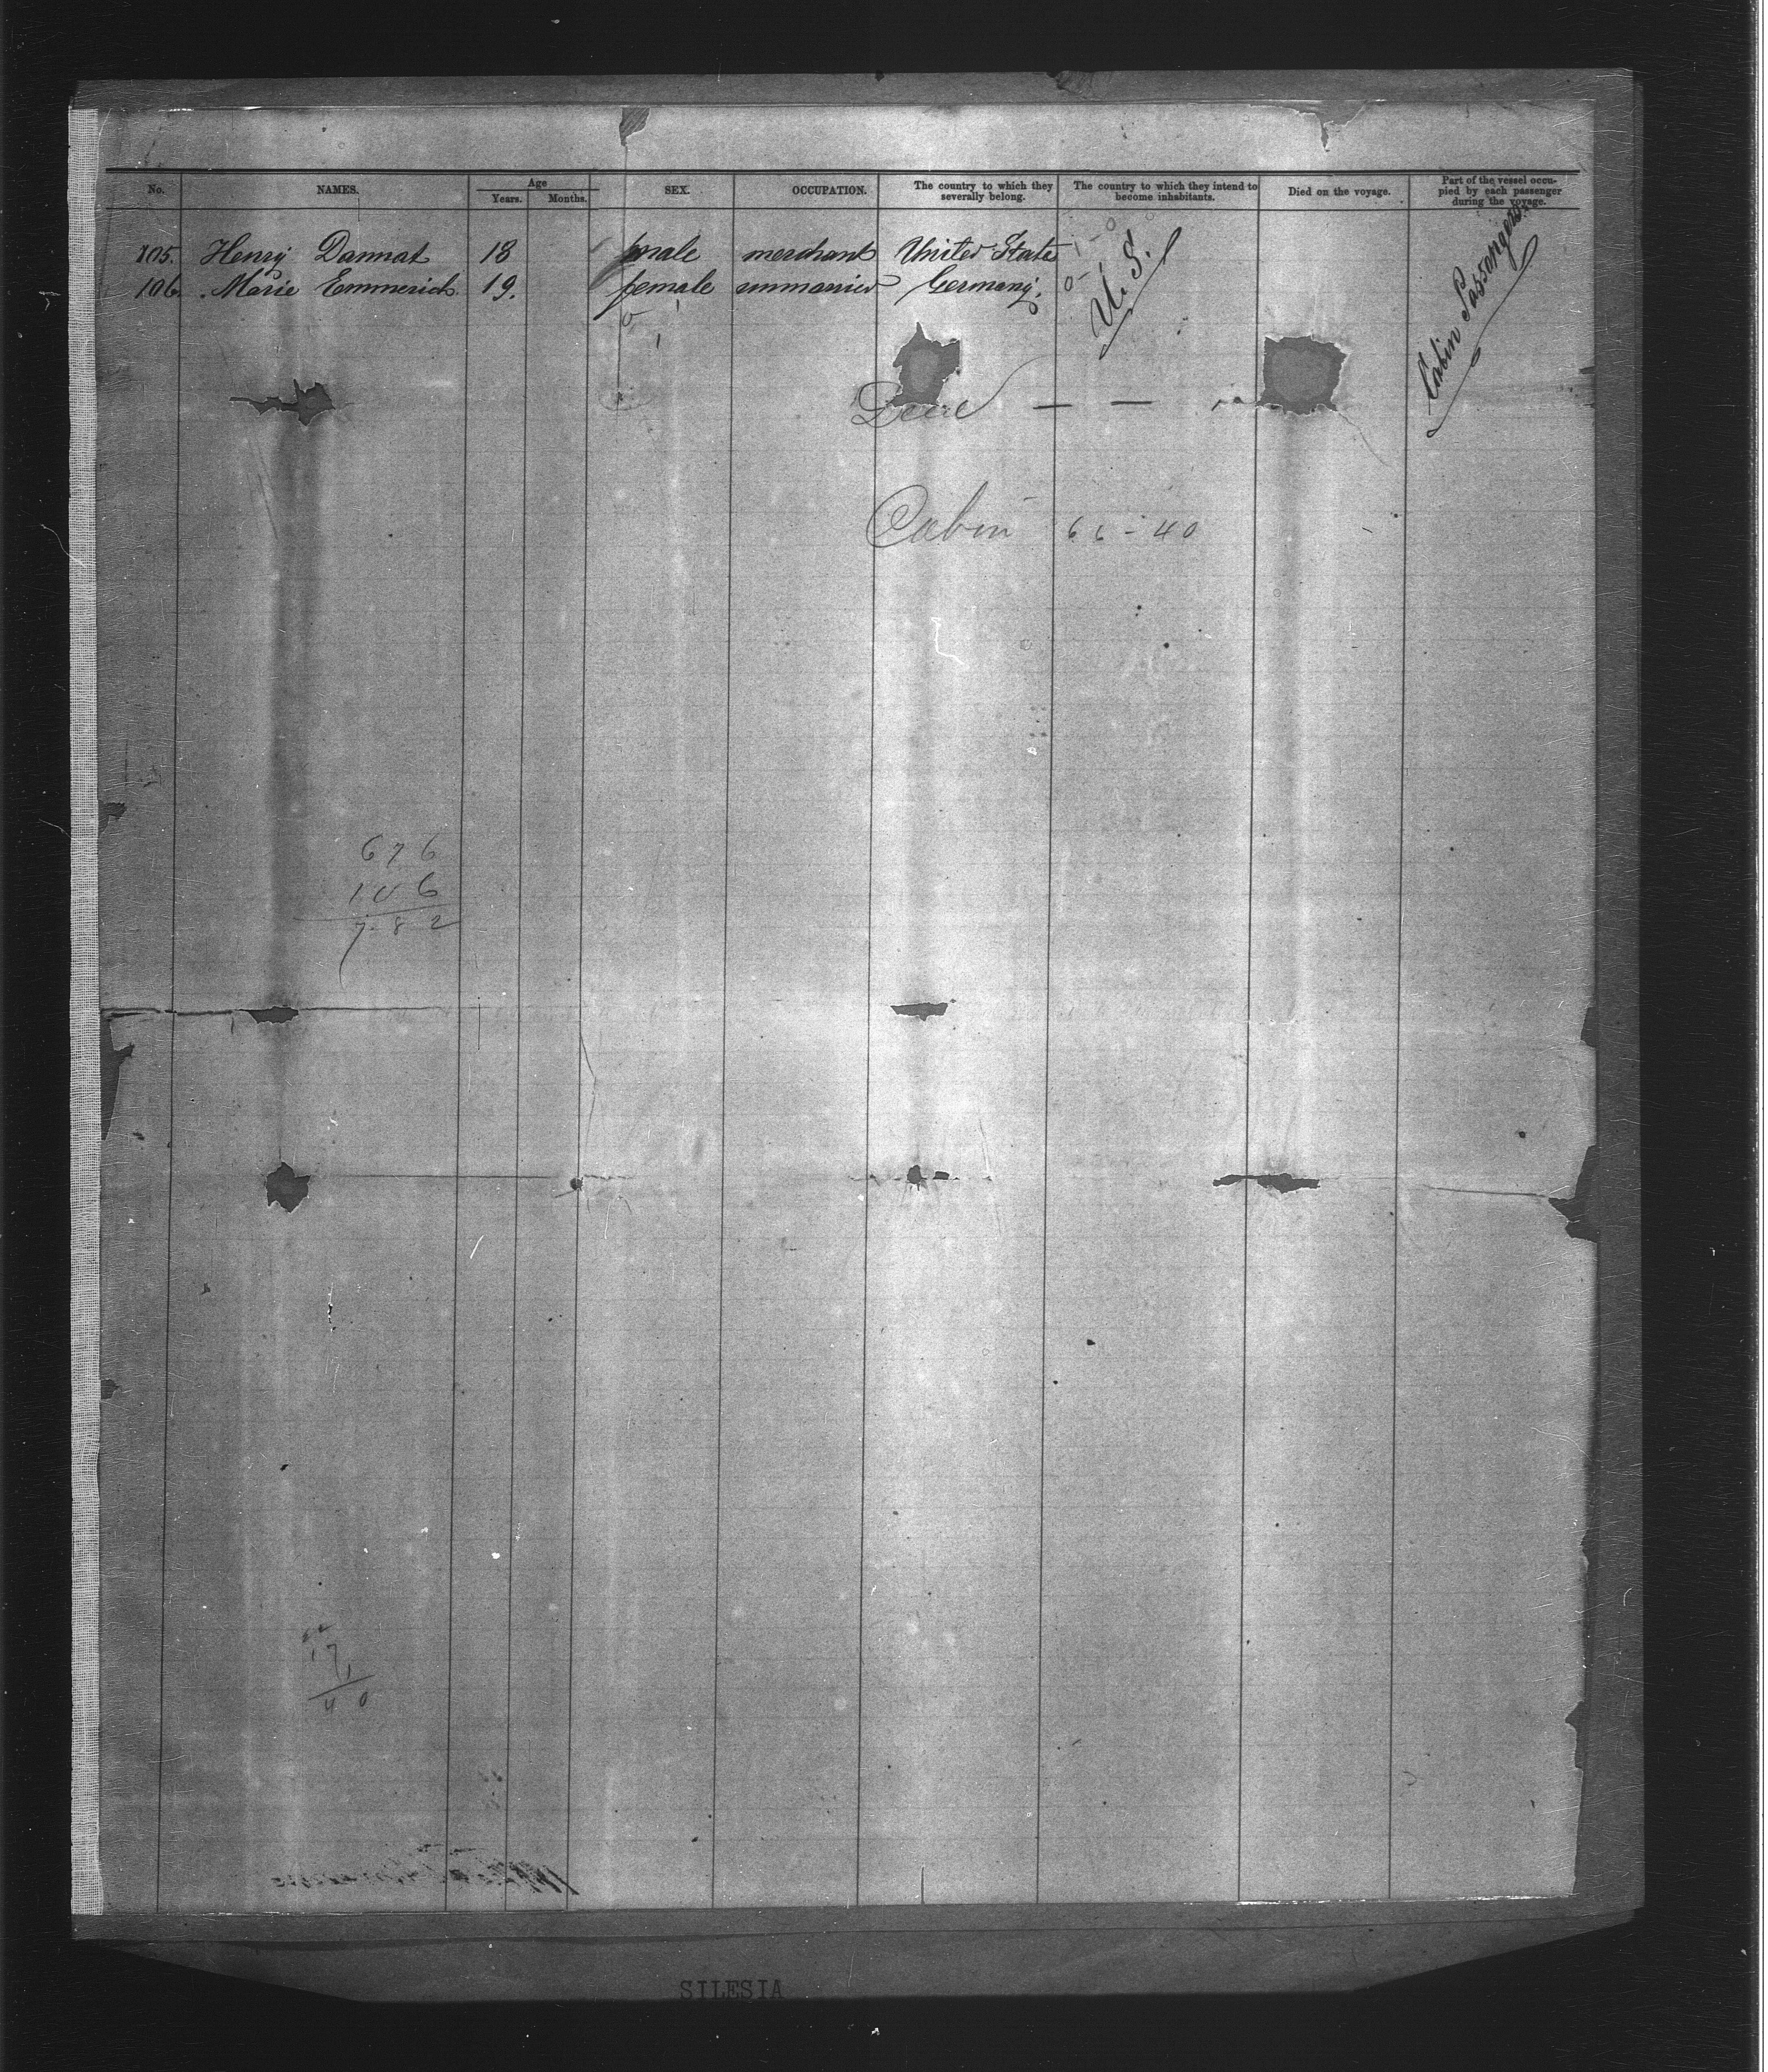 No. NAMES. Age Years. Months. SEX. OCCUPATION. The country to which they severally belong. The country to which they intend to become inhabitants. Died on the voyage. Part of the vessel occupied by each passenger during the voyage.
105. Henry Dannat 18 male merchant United States U. S. Cabin Passengers
106. Marie Emmerich 19. female unmarried Germany.
Cabin 66-40
676
106
782
17
40
SILESIA